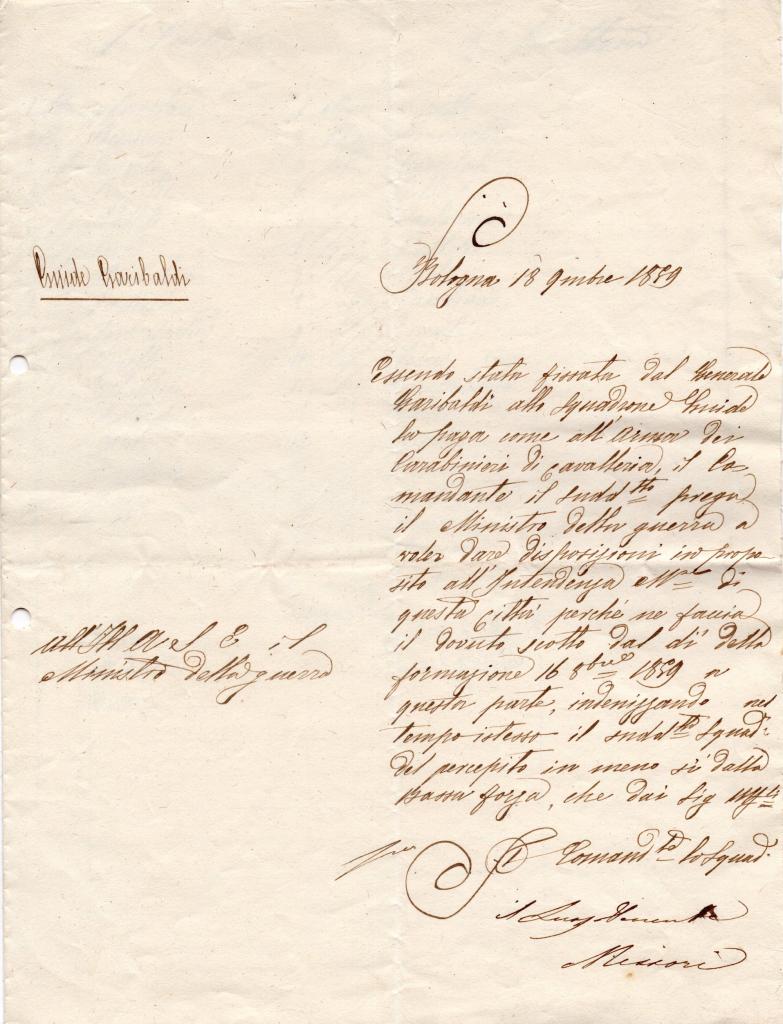 Guide Garibaldi
Bologna 18 9mbre 1859
Essendo stata fissata dal Generale
Garibaldi allo Squadrone Guide
la paga come all'Arma dei
Carabinieri di cavalleria, il Co-
mandante il sudd.tto prega
il Ministro della guerra a
voler dare disposizioni in propo
sito all'Intendenza M.re di
questa Città perchè ne faccia
il dovuto scotto dal dì della
formazione 16 8bre 1859 a
questa parte, indenizzando nel
tempo istesso il sudd.tto Squad.e
del percepito in meno sì dalla
Bassa forza, che dai Sig Uff.li
all' il
Ministro della guerra
Il Comand.te lo Squad.
il
Missori